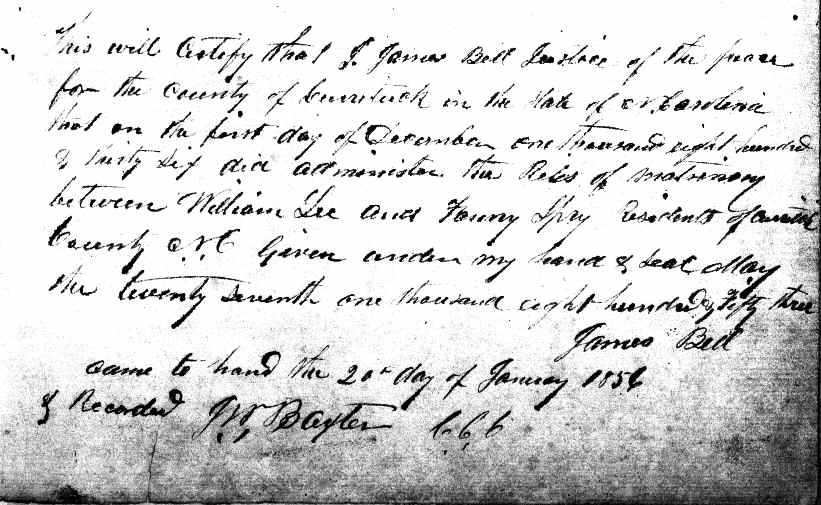 This will Certify that I. James Bell Justice of the peace
for the County of Currituck in the State of N. Carolina
that on the first day of December one thousand eight hundred
& thirty six did administer the Rites of matrimony
between William Lee and Fanny Spry Residents of Currituck
County N.C Given under my hand & seal May
the twenty seventh one thousand eight hundred & Fifty three
James Bell
came to hand the 20th day of January 185
& Recorded Baxter C.C.C